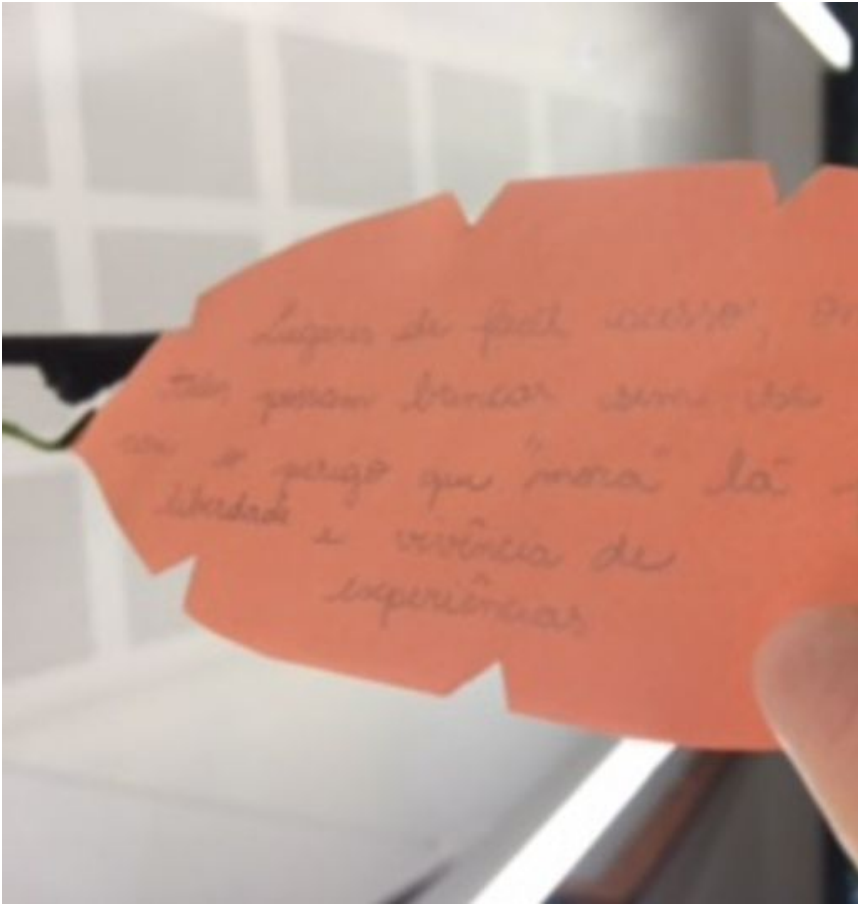 Lugares de fácil acesso,
possam brincar sem
o perigo que "mora" lá
liberdade e vivência de
experiências